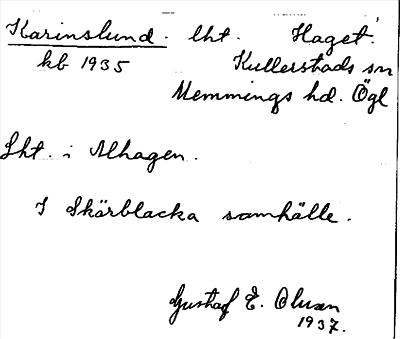 Karinslund. lht. Haget.
kb 1935 Kullerstads sn
Memmings hd. Ögl
Lht. i Alhagen.
I Skärblacka samhälle.
Gustaf E. Olsson
1937.